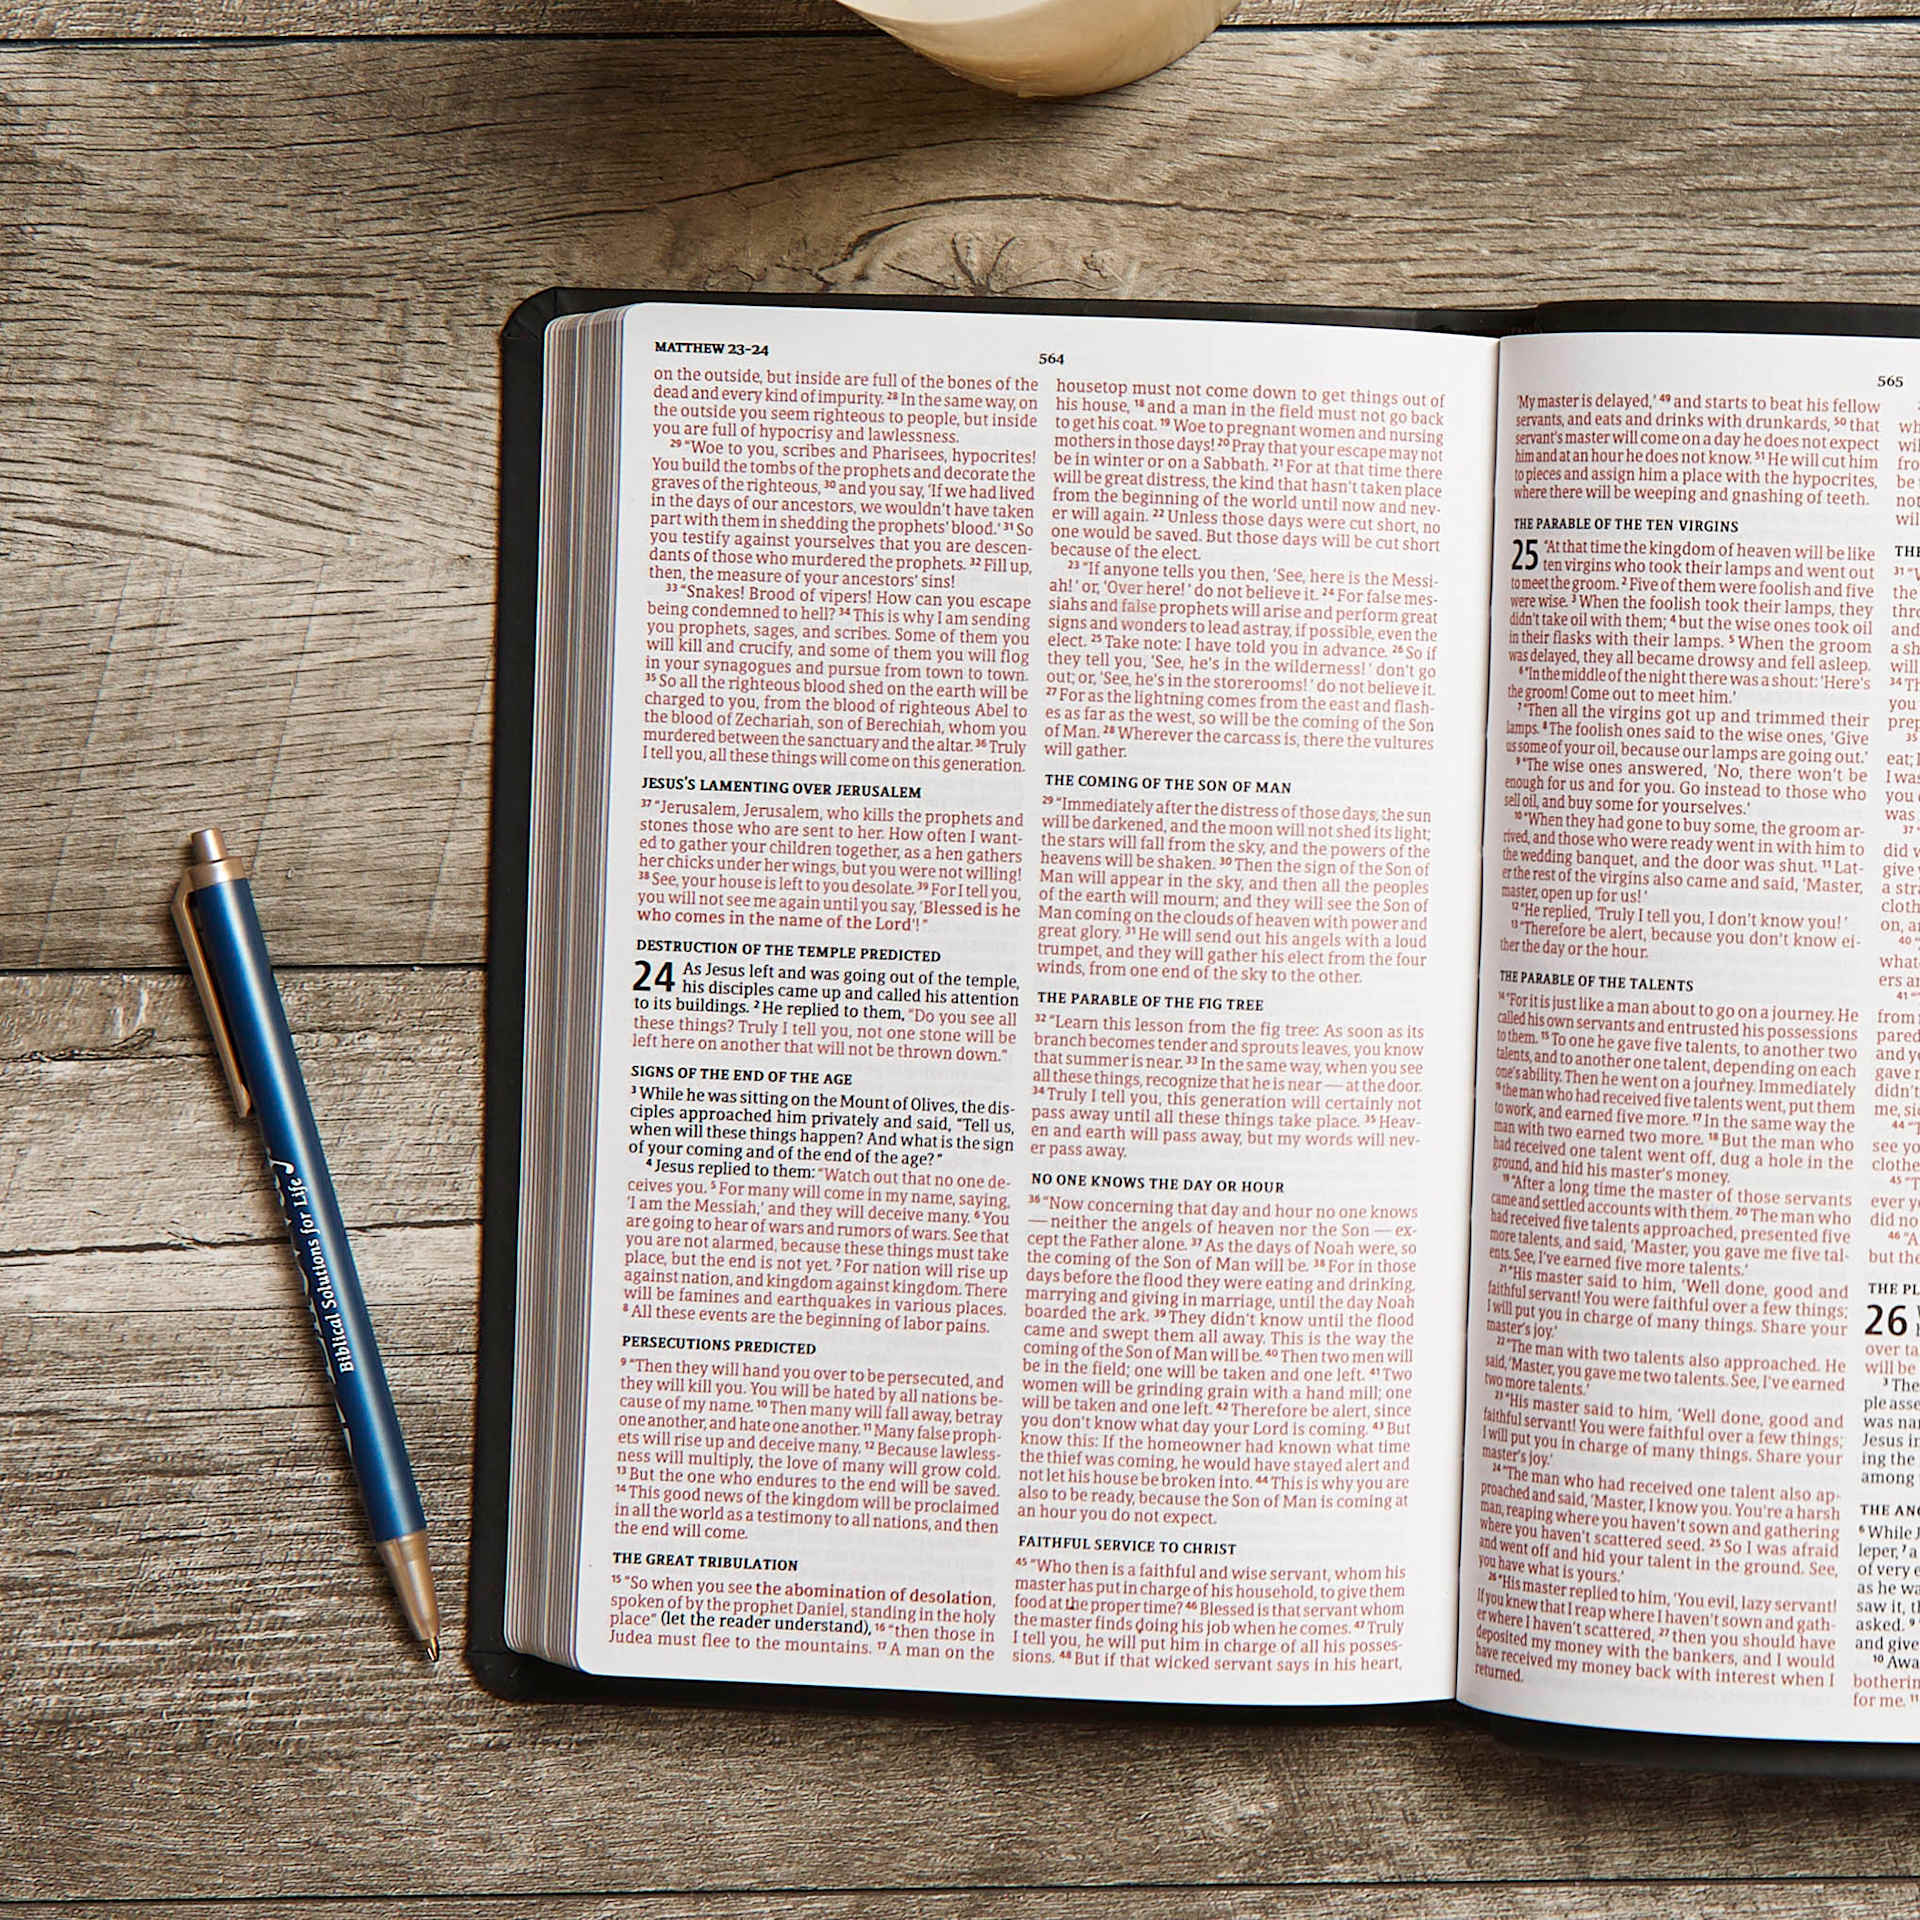 MATTHEW 23-24
564
on the outside, but inside are full of the bones of the
dead and every kind of impurity. 28 In the same way, on
the outside you seem righteous to people, but inside
you are full of hypocrisy and lawlessness.
29 “Woe to you, scribes and Pharisees, hypocrites!
You build the tombs of the prophets and decorate the
graves of the righteous, 30 and you say, ‘If we had lived
in the days of our ancestors, we wouldn’t have taken
part with them in shedding the prophets’ blood.’ 31 So
you testify against yourselves that you are descen-
dants of those who murdered the prophets. 32 Fill up,
then, the measure of your ancestors’ sins!
33 “Snakes! Brood of vipers! How can you escape
being condemned to hell? 34 This is why I am sending
you prophets, sages, and scribes. Some of them you
will kill and crucify, and some of them you will flog
in your synagogues and pursue from town to town.
35 So all the righteous blood shed on the earth will be
charged to you, from the blood of righteous Abel to
the blood of Zechariah, son of Berechiah, whom you
murdered between the sanctuary and the altar. 36 Truly
I tell you, all these things will come on this generation.
JESUS’S LAMENTING OVER JERUSALEM
37 “Jerusalem, Jerusalem, who kills the prophets and
stones those who are sent to her. How often I want-
ed to gather your children together, as a hen gathers
her chicks under her wings, but you were not willing!
38 See, your house is left to you desolate. 39 For I tell you,
you will not see me again until you say, ‘Blessed is he
who comes in the name of the Lord’!”
DESTRUCTION OF THE TEMPLE PREDICTED
24 As Jesus left and was going out of the temple,
his disciples came up and called his attention
to its buildings. 2 He replied to them, “Do you see all
these things? Truly I tell you, not one stone will be
left here on another that will not be thrown down.”
SIGNS OF THE END OF THE AGE
3 While he was sitting on the Mount of Olives, the dis-
ciples approached him privately and said, “Tell us,
when will these things happen? And what is the sign
of your coming and of the end of the age?”
4 Jesus replied to them: “Watch out that no one de-
ceives you. 5 For many will come in my name, saying,
‘I am the Messiah,’ and they will deceive many. 6 You
are going to hear of wars and rumors of wars. See that
you are not alarmed, because these things must take
place, but the end is not yet. 7 For nation will rise up
against nation, and kingdom against kingdom. There
will be famines and earthquakes in various places.
8 All these events are the beginning of labor pains.
PERSECUTIONS PREDICTED
9 “Then they will hand you over to be persecuted, and
they will kill you. You will be hated by all nations be-
cause of my name. 10 Then many will fall away, betray
one another, and hate one another. 11 Many false proph-
ets will rise up and deceive many. 12 Because lawless-
ness will multiply, the love of many will grow cold.
13 But the one who endures to the end will be saved.
14 This good news of the kingdom will be proclaimed
in all the world as a testimony to all nations, and then
the end will come.
THE GREAT TRIBULATION
15 “So when you see the abomination of desolation,
spoken of by the prophet Daniel, standing in the holy
place” (let the reader understand), 16 “then those in
Judea must flee to the mountains. 17 A man on the
housetop must not come down to get things out of
his house, 18 and a man in the field must not go back
to get his coat. 19 Woe to pregnant women and nursing
mothers in those days! 20 Pray that your escape may not
be in winter or on a Sabbath. 21 For at that time there
will be great distress, the kind that hasn’t taken place
from the beginning of the world until now and nev-
er will again. 22 Unless those days were cut short, no
one would be saved. But those days will be cut short
because of the elect.
23 “If anyone tells you then, ‘See, here is the Messi-
ah!’ or, ‘Over here!’ do not believe it. 24 For false mes-
siahs and false prophets will arise and perform great
signs and wonders to lead astray, if possible, even the
elect. 25 Take note: I have told you in advance. 26 So if
they tell you, ‘See, he’s in the wilderness!’ don’t go
out; or, ‘See, he’s in the storerooms!’ do not believe it.
27 For as the lightning comes from the east and flash-
es as far as the west, so will be the coming of the Son
of Man. 28 Wherever the carcass is, there the vultures
will gather.
THE COMING OF THE SON OF MAN
29 “Immediately after the distress of those days, the sun
will be darkened, and the moon will not shed its light;
the stars will fall from the sky, and the powers of the
heavens will be shaken. 30 Then the sign of the Son of
Man will appear in the sky, and then all the peoples
of the earth will mourn; and they will see the Son of
Man coming on the clouds of heaven with power and
great glory. 31 He will send out his angels with a loud
trumpet, and they will gather his elect from the four
winds, from one end of the sky to the other.
THE PARABLE OF THE FIG TREE
32 “Learn this lesson from the fig tree: As soon as its
branch becomes tender and sprouts leaves, you know
that summer is near. 33 In the same way, when you see
all these things, recognize that he is near — at the door.
34 Truly I tell you, this generation will certainly not
pass away until all these things take place. 35 Heav-
en and earth will pass away, but my words will nev-
er pass away.
NO ONE KNOWS THE DAY OR HOUR
36 “Now concerning that day and hour no one knows
— neither the angels of heaven nor the Son — ex-
cept the Father alone. 37 As the days of Noah were, so
the coming of the Son of Man will be. 38 For in those
days before the flood they were eating and drinking,
marrying and giving in marriage, until the day Noah
boarded the ark. 39 They didn’t know until the flood
came and swept them all away. This is the way the
coming of the Son of Man will be. 40 Then two men will
be in the field; one will be taken and one left. 41 Two
women will be grinding grain with a hand mill; one
will be taken and one left. 42 Therefore be alert, since
you don’t know what day your Lord is coming. 43 But
know this: If the homeowner had known what time
the thief was coming, he would have stayed alert and
not let his house be broken into. 44 This is why you are
also to be ready, because the Son of Man is coming at
an hour you do not expect.
FAITHFUL SERVICE TO CHRIST
45 “Who then is a faithful and wise servant, whom his
master has put in charge of his household, to give them
food at the proper time? 46 Blessed is that servant whom
the master finds doing his job when he comes. 47 Truly
I tell you, he will put him in charge of all his posses-
sions. 48 But if that wicked servant says in his heart,
565
‘My master is delayed,’ 49 and starts to beat his fellow
servants, and eats and drinks with drunkards, 50 that
servant’s master will come on a day he does not expect
him and at an hour he does not know. 51 He will cut him
to pieces and assign him a place with the hypocrites,
where there will be weeping and gnashing of teeth.
THE PARABLE OF THE TEN VIRGINS
25 “At that time the kingdom of heaven will be like
ten virgins who took their lamps and went out
to meet the groom. 2 Five of them were foolish and five
were wise. 3 When the foolish took their lamps, they
didn’t take oil with them; 4 but the wise ones took oil
in their flasks with their lamps. 5 When the groom
was delayed, they all became drowsy and fell asleep.
6 “In the middle of the night there was a shout: ‘Here’s
the groom! Come out to meet him.’
7 “Then all the virgins got up and trimmed their
lamps. 8 The foolish ones said to the wise ones, ‘Give
us some of your oil, because our lamps are going out.’
9 “The wise ones answered, ‘No, there won’t be
enough for us and for you. Go instead to those who
sell oil, and buy some for yourselves.’
10 “When they had gone to buy some, the groom ar-
rived, and those who were ready went in with him to
the wedding banquet, and the door was shut. 11 Lat-
er the rest of the virgins also came and said, ‘Master,
master, open up for us!’
12 “He replied, ‘Truly I tell you, I don’t know you!’
13 “Therefore be alert, because you don’t know ei-
ther the day or the hour.
THE PARABLE OF THE TALENTS
14 “For it is just like a man about to go on a journey. He
called his own servants and entrusted his possessions
to them. 15 To one he gave five talents, to another two
talents, and to another one talent, depending on each
one’s ability. Then he went on a journey. Immediately
16 the man who had received five talents went, put them
to work, and earned five more. 17 In the same way the
man with two earned two more. 18 But the man who
had received one talent went off, dug a hole in the
ground, and hid his master’s money.
19 “After a long time the master of those servants
came and settled accounts with them. 20 The man who
had received five talents approached, presented five
more talents, and said, ‘Master, you gave me five tal-
ents. See, I’ve earned five more talents.’
21 “His master said to him, ‘Well done, good and
faithful servant! You were faithful over a few things;
I will put you in charge of many things. Share your
master’s joy.’
22 “The man with two talents also approached. He
said, ‘Master, you gave me two talents. See, I’ve earned
two more talents.’
23 “His master said to him, ‘Well done, good and
faithful servant! You were faithful over a few things;
I will put you in charge of many things. Share your
master’s joy.’
24 “The man who had received one talent also ap-
proached and said, ‘Master, I know you. You’re a harsh
man, reaping where you haven’t sown and gathering
where you haven’t scattered seed. 25 So I was afraid
and went off and hid your talent in the ground. See,
you have what is yours.’
26 “His master replied to him, ‘You evil, lazy servant!
If you knew that I reap where I haven’t sown and gath-
er where I haven’t scattered, 27 then you should have
deposited my money with the bankers, and I would
have received my money back with interest when I
returned.
26
3 The
ple asse
was na
Jesus in
ing the
among
THE AN
6 While J
leper, 7 a
of very e
as he wa
saw it, t
asked. 9
and give
10 Awa
botherin
for me. 11
Biblical Solutions for Life